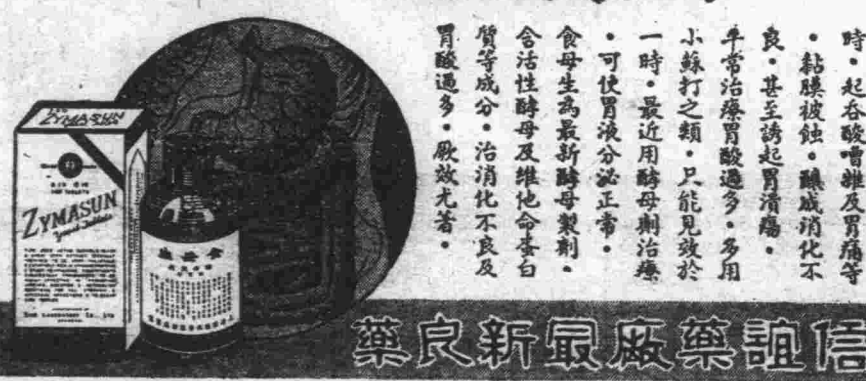 時・起吞酸嘈雜及胃痛等
・黏膜被蝕・釀成消化不
良・甚至誘起胃潰瘍・
平常治療胃酸過多・多用
小蘇打之類・只能見效於
一時・最近用酵母劑治療
・可使胃液分泌正常・
食母生為最新酵母製劑・
含活性酵母及維他命蛋白
質等成分・治消化不良及
胃酸過多・厥效尤著・
ZYMASUN
ZYMASUN
Yeast Tablets
食母生
信誼藥廠最新良藥